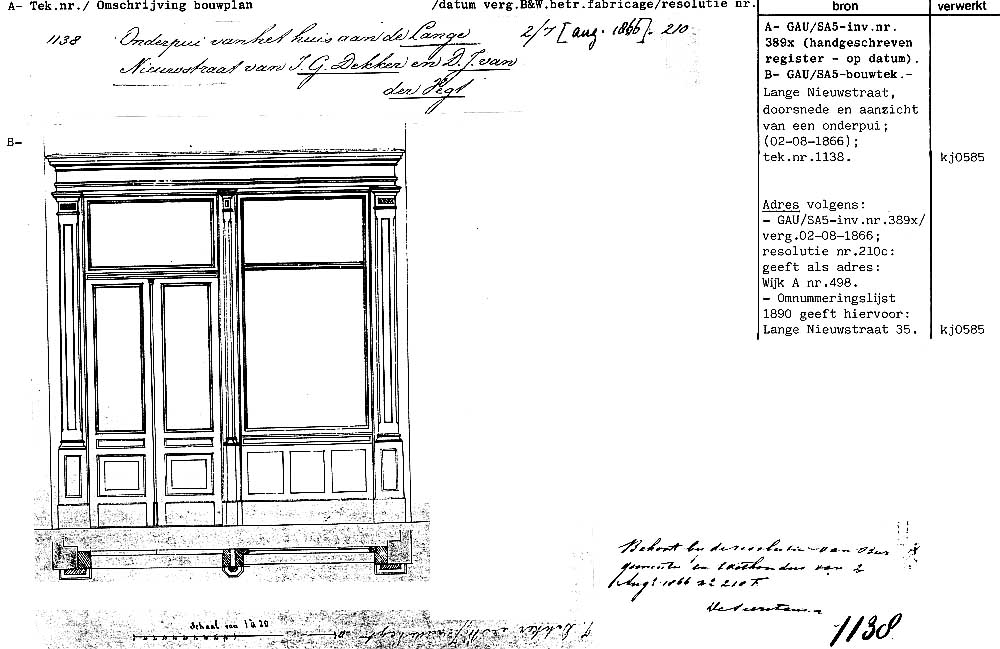 A- Tek.nr./ Omschrijving bouwplan /datum verg.B&W,betr.fabricage/resolutie nr.
bron
verwerkt
1138 Onderpui van het huis aan de Lange 2/7 [aug. 1866]. 210
Nieuwstraat van J. G. Dekker en D. J. van
der Pegt
A- GAU/SA5-inv.nr.
389x (handgeschreven
register - op datum).
B- GAU/SA5-bouwtek.-
Lange Nieuwstraat,
doorsnede en aanzicht
van een onderpui;
(02-08-1866);
tek.nr.1138. kj0585
Adres volgens:
- GAU/SA5-inv.nr.389x/
verg.02-08-1866;
resolutie nr.210c:
geeft als adres:
Wijk A nr.498.
- Omnummeringslijst
1890 geeft hiervoor:
Lange Nieuwstraat 35. kj0585
B-
Behoort bij de resolutie van
gemeente en van 2
Aug 1866 No 210
Schaal van 1 à 20
1138